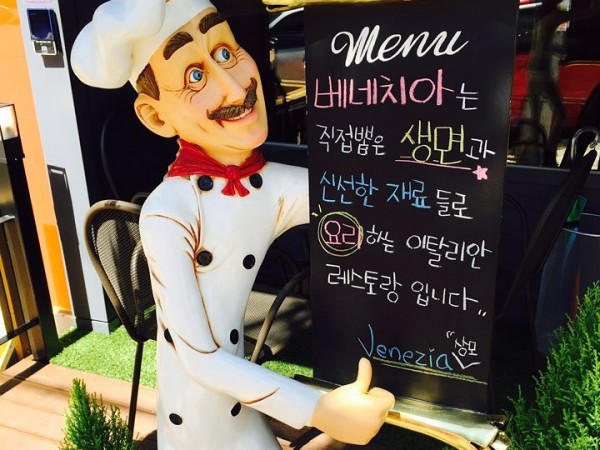 Menu
베네치아는
직접뽑은 생면과
신선한 재료들로
요리하는 이탈리안
레스토랑 입니다,,
Venezia "상모